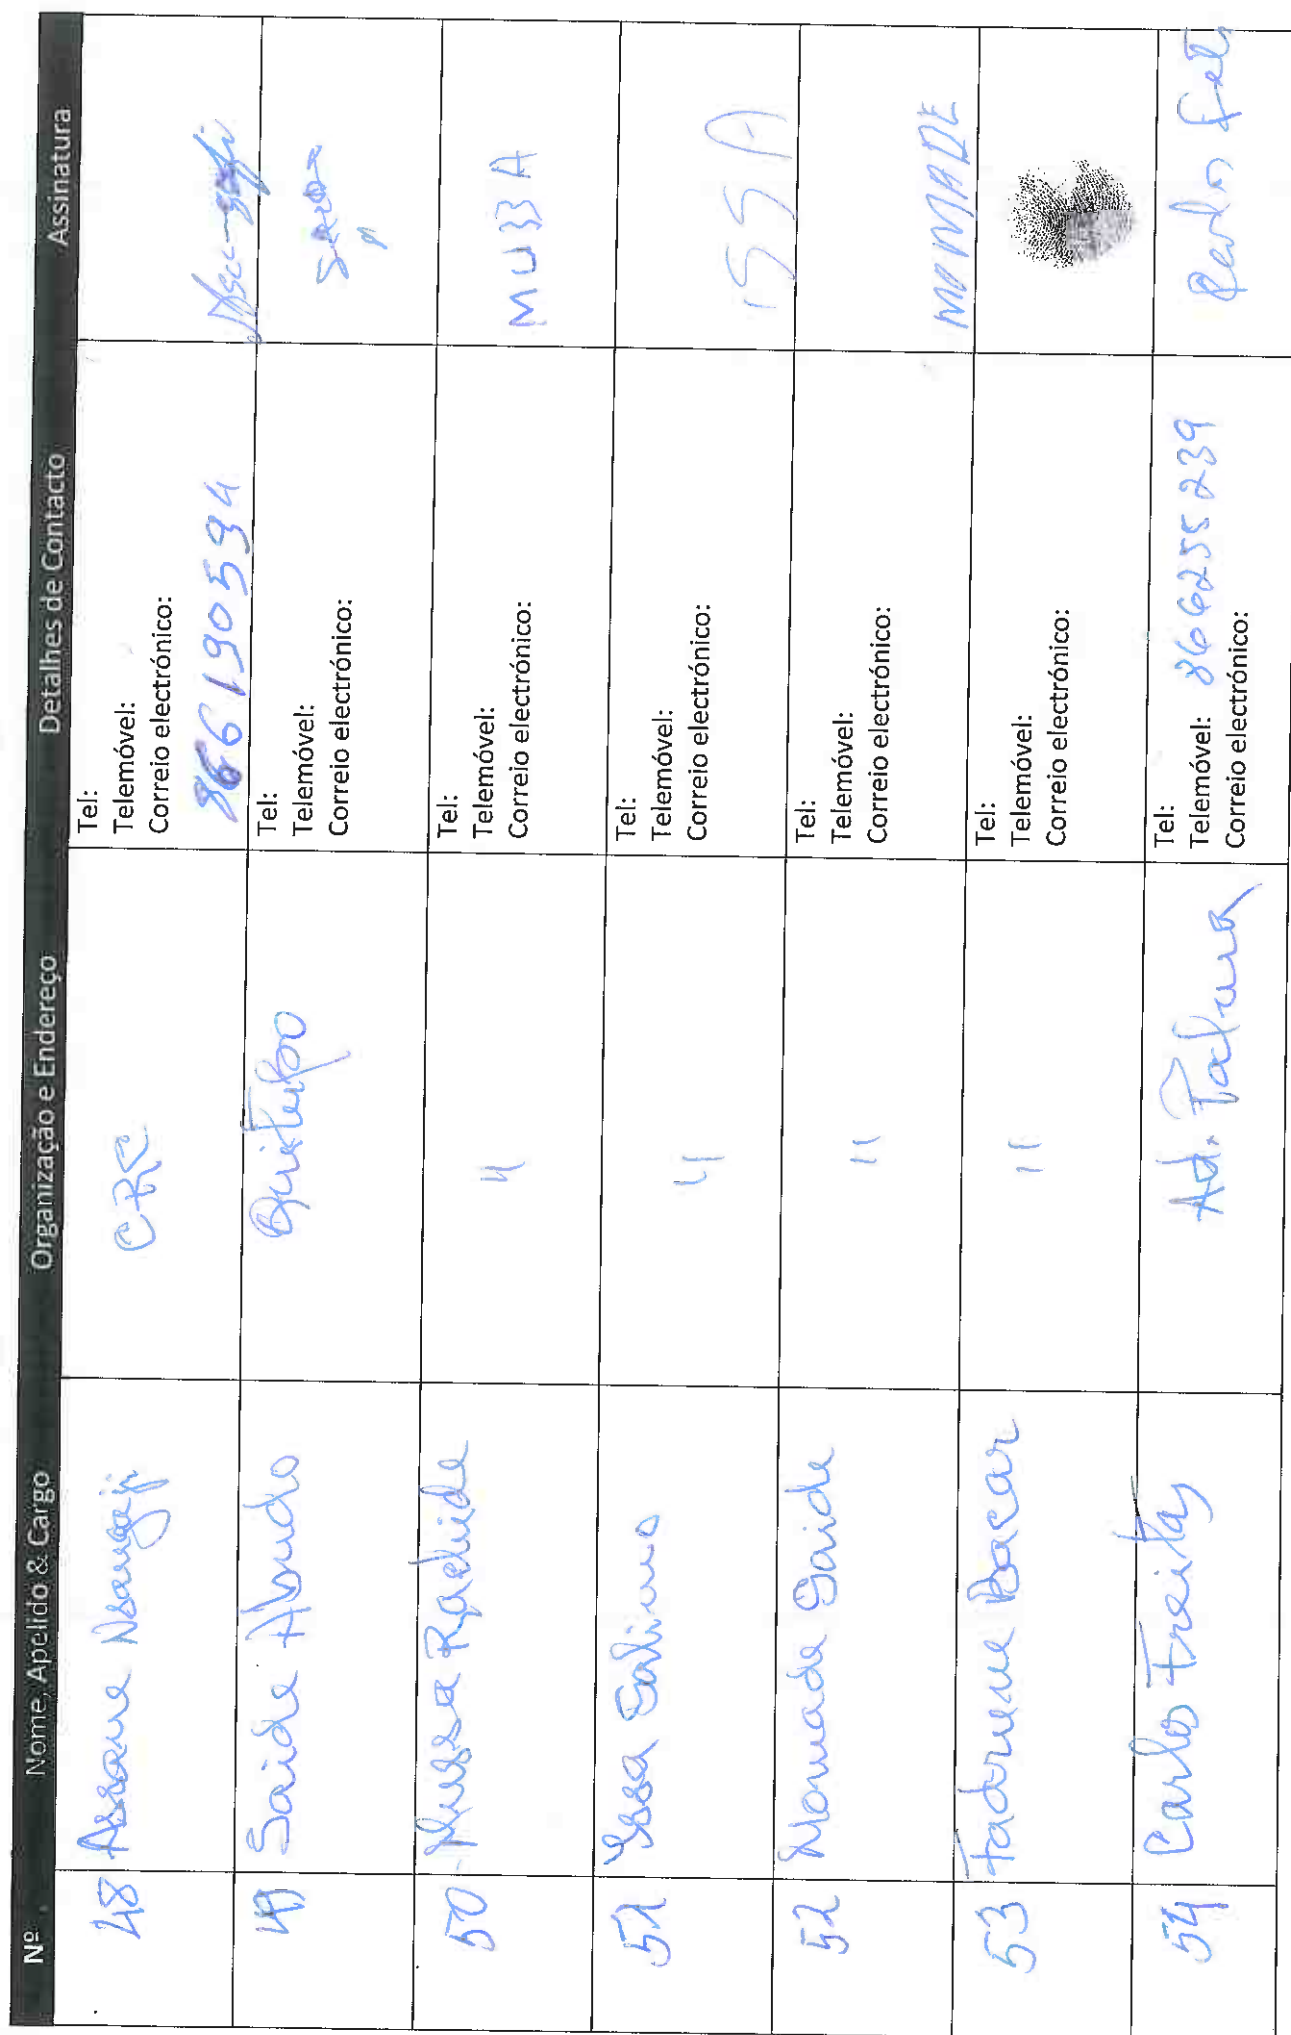 Nº Nome, Apelido & Cargo Organização e Endereço Detalhes de Contacto Assinatura
48 Assane Nsangaji CRC Tel:
Telemóvel:
Correio electrónico:
866190594
49 Saide Abudo Tel:
Telemóvel:
Correio electrónico:
50 Mussa Rachide 11 Tel: MUSSA
Telemóvel:
Correio electrónico:
51 Issa Salimo 11 Tel: ISSA
Telemóvel:
Correio electrónico:
52 Momade Saide 11 Tel: MOMADE
Telemóvel:
Correio electrónico:
53 Bacar 11 Tel:
Telemóvel:
Correio electrónico:
54 Carlos Freitas Tel:
Telemóvel: 866255239
Correio electrónico: